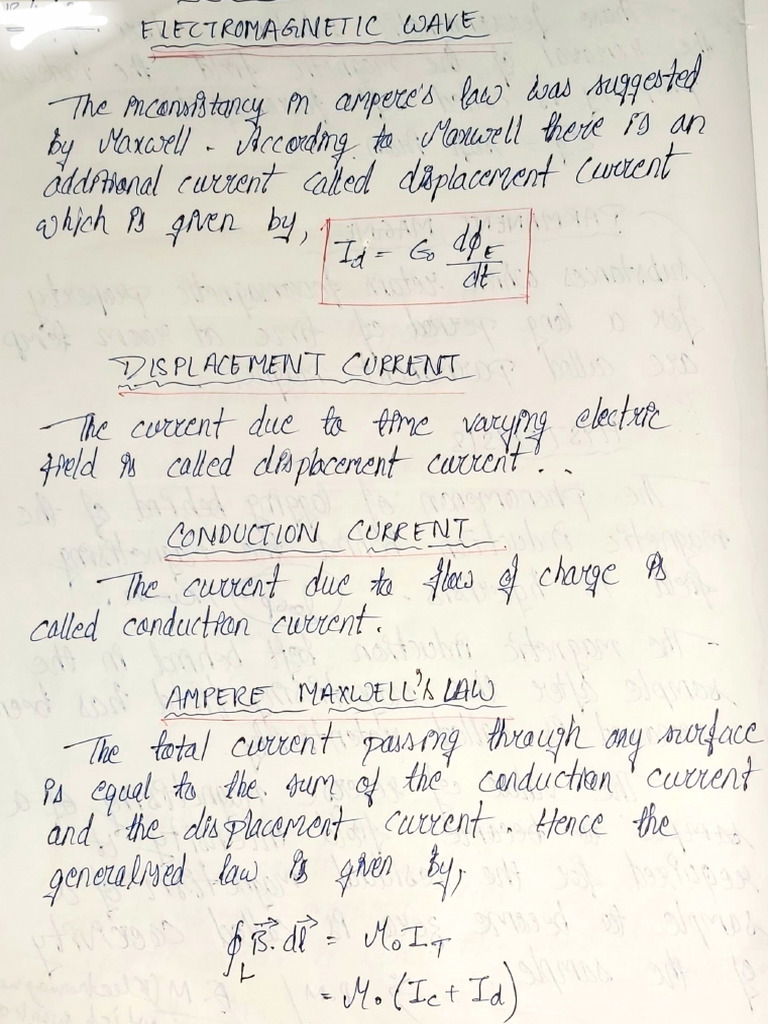 ELECTROMAGNETIC WAVE
The inconsistancy in ampere's law was suggested
by Maxwell. According to Maxwell there is an
additional current called displacement current
which is given by,
I_d = ε₀ dϕ_E/dt
DISPLACEMENT CURRENT
The current due to time varying electric
field is called displacement current.
CONDUCTION CURRENT
The current due to flow of charge is
called conduction current.
AMPERE MAXWELL'S LAW
The total current passing through any surface
is equal to the sum of the conduction current
and the displacement current. Hence the
generalised law is given by,
∮_L B⃗. dl⃗ = μ₀ I_T
= μ₀ (I_c + I_d)